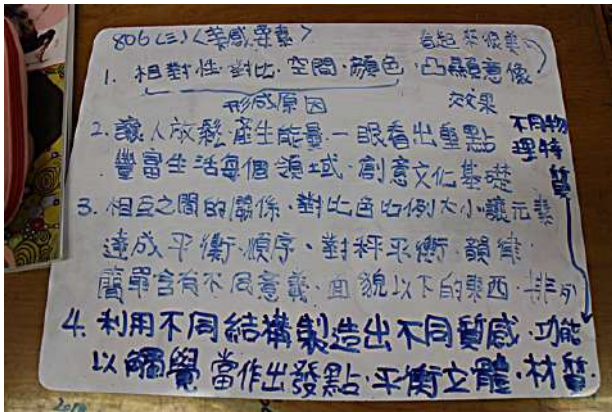 806(三)〈美感素養〉
看起來很美
1. 相對性·對比·空間·顏色·凸顯意像
形成原因 效果
2. 讓人放鬆·產生能量·一眼看出重點
不同物理特質
豐富生活每個領域·創意文化基礎
3. 相互之間的關係·對比色比例大小·讓元素
達成平衡·順序、對秤平衡·韻律·
簡單含有不同意義·面貌以下的東西·排列
4. 利用不同結構製造出不同質感·功能
以觸覺當作出發點·平衡立體·材質·